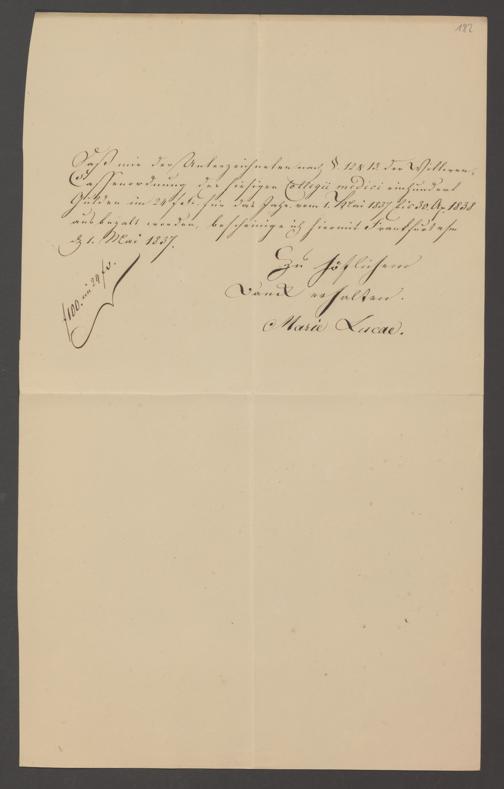 182
Daß mir der Unterzeichneten nach §. 12 & 13 der Wittwen,
Cassenordnung des hiesigen Collegii medici einhundert
Gulden im 24 f für das Jahr vom 1. Mai 1837 bis 30. Ap. 1838
ausbezalt worden, bescheinige ich hiermit Frankfurt a/m
d. 1. Mai 1837.
Zu höflichem
Dank erhalten.
Marie Lucae.
f 100. im 24 f.